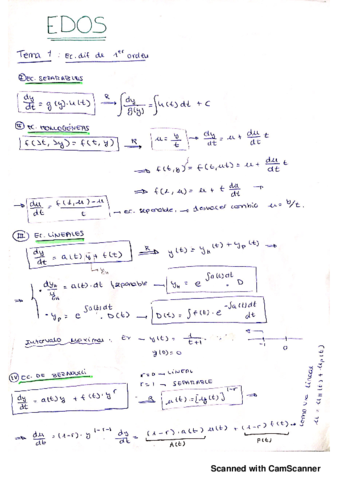 EDOS
Tema 1: Ec. dif de 1er orden
I) EC. SEPARABLES
dy/dt = g(y)·u(t) R→ ∫dy/g(y) = ∫u(t)dt + C
II) EC. HOMOGÉNEAS
f(λt, λy) = f(t, y) R→ u = y/t → dy/dt = u + du/dt t
⇒ f(t, y) = f(t, ut) = u + du/dt t
⇒ f(1, u) = u + t du/dt →
→ du/dt = f(1, u) - u / t → ec. separable. → deshacer cambio
III) EC. LINEALES
dy/dt = a(t) y + f(t) R→ y(t) = yh(t) + yp(t) →
→ yh
dyh/yh = a(t) dt (separable → yh = e^∫a(t)dt · D
- yp = e^∫a(t)dt · D(t) → D(t) = ∫f(t)·e^-∫a(t)dt dt
Intervalo Maximal: Ex → y(t) = 1/(t+1)
y(0)=0
-1 0
IV) EC. DE BERNOULLI
r=0 → LINEAL
r=1 → SEPARABLE
dy/dt = a(t)y + f(t)·y^r R→ u(t) = [y(t)]^1-r
⇒ du/dt = (1-r)·y^1-r-1 · dy/dt = (1-r)·a(t) u(t) + (1-r) f(t) →
A(t) F(t)
como una lineal
Scanned with CamScanner